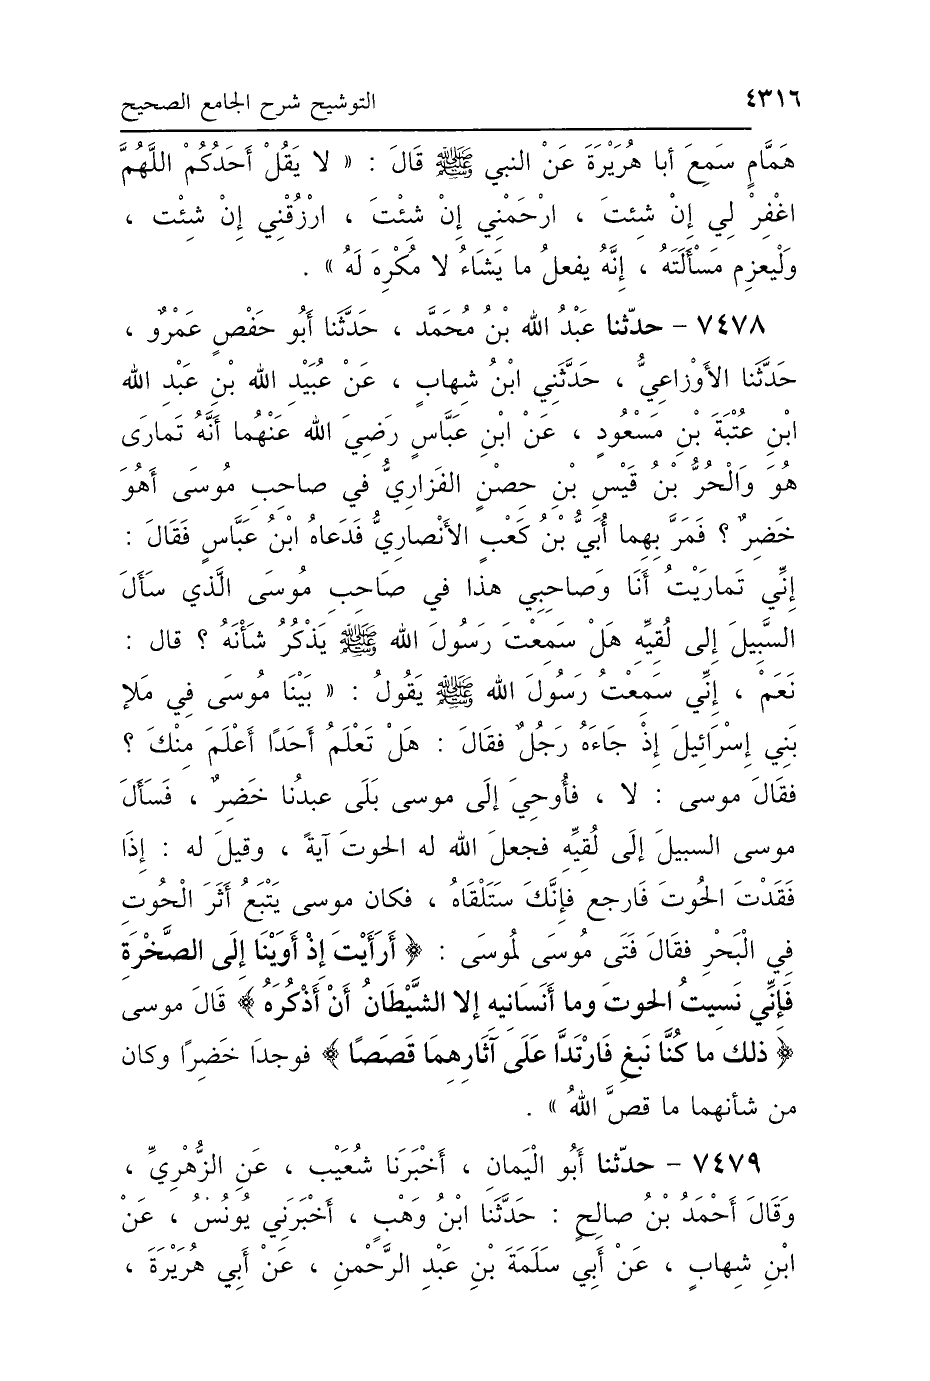 ٤٣١٦ التوشيح شرح الجامع الصحيح
هَمَّامٍ سَمِعَ أبا هُرَيْرَةَ عَنْ النبي ﷺ قَالَ : « لا يَقُلْ أَحَدُكُمْ اللَّهُمَّ
اغْفِرْ لِي إِنْ شِئتَ ، ارْحَمْنِي إِنْ شِئْتَ ، ارْزُقْنِي إِنْ شِئْت ،
وَلْيعزِم مَسْأَلَتَهُ ، إِنَّهُ يفعلُ ما يَشَاءُ لا مُكْرِهَ لَهُ » .
٧٤٧٨ - حدّثنا عَبْدُ الله بْنُ مُحَمَّد ، حَدَّثَنا أَبُو حَفْصٍ عَمْرٌو ،
حَدَّثَنا الأَوْزاعِيُّ ، حَدَّثَنِي ابْنُ شِهابٍ ، عَنْ عُبَيْدِ الله بْنِ عَبْدِ الله
ابْنِ عُتْبَةَ بْنِ مَسْعُودٍ ، عَنْ ابْنِ عَبَّاسٍ رَضِيَ الله عَنْهُما أَنَّهُ تَمارَى
هُوَ وَالْحُرُّ بْنُ قَيْسِ بْنِ حِصْنٍ الفَزارِيُّ في صاحِبِ مُوسَى أَهُوَ
خَضِرٌ ؟ فَمَرَّ بِهِما أُبَيُّ بْنُ كَعْبٍ الأَنْصارِيُّ فَدَعاهُ ابْنُ عَبَّاسٍ فَقَالَ :
إِنِّي تَمارَيْتُ أَنَا وَصاحِبِي هذا في صَاحِبِ مُوسَى الَّذي سَأَلَ
السَّبِيلَ إلى لُقِيِّه هَلْ سَمِعْتَ رَسُولَ الله ﷺ يَذْكُرُ شَأْنَهُ ؟ قال :
نَعَمْ ، إِنِّي سَمِعْتُ رَسُولَ الله ﷺ يَقُولُ : « بَيْنَا مُوسَى فِي مَلإِ
بَنِي إِسْرَائِيلَ إِذْ جَاءَهُ رَجُلٌ فقالَ : هَلْ تَعْلَمُ أَحَدًا أَعْلَمَ مِنْكَ ؟
فقَالَ موسى : لا ، فأُوحِيَ إلَى موسى بَلَى عبدُنا خَضِرٌ ، فَسَأَلَ
موسى السبيلَ إلَى لُقِيِّهِ فجعلَ الله له الحوتَ آيةً ، وقيلَ له : إِذَا
فَقَدْتَ الحُوتَ فَارجع فإِنَّكَ سَتَلْقَاهُ ، فكان موسى يَتْبَعُ أَثَرَ الْحُوتِ
فِي الْبَحْرِ فقَالَ فَتَى مُوسَى لمُوسَى : ﴿ أَرَأَيْتَ إِذْ أَوَيْنَا إِلَى الصَّخْرَةِ
فَإِنِّي نَسِيتُ الحوتَ وما أَنْسَانيه إلا الشَّيْطَانُ أَنْ أَذْكُرَهُ ﴾ قَالَ موسى
﴿ ذلك ما كُنَّا نَبغِ فَارْتَدَّا عَلَى آثارِهِمَا قَصَصًا ﴾ فوجدَا خَضِرًا وكان
من شأنهما ما قصَّ اللهُ » .
٧٤٧٩ - حدّثنا أَبُو الْيَمانِ ، أَخْبَرَنَا شُعَيْب ، عَنِ الزُّهْرِيِّ ،
وَقَالَ أَحْمَدُ بْنُ صالِحٍ : حَدَّثَنَا ابْنُ وَهْبٍ ، أَخْبَرَنِي يُونُسُ ، عَنْ
ابْنِ شِهابٍ ، عَنْ أَبِي سَلَمَةَ بْنِ عَبْدِ الرَّحْمنِ ، عَنْ أَبِي هُرَيْرَةَ ،